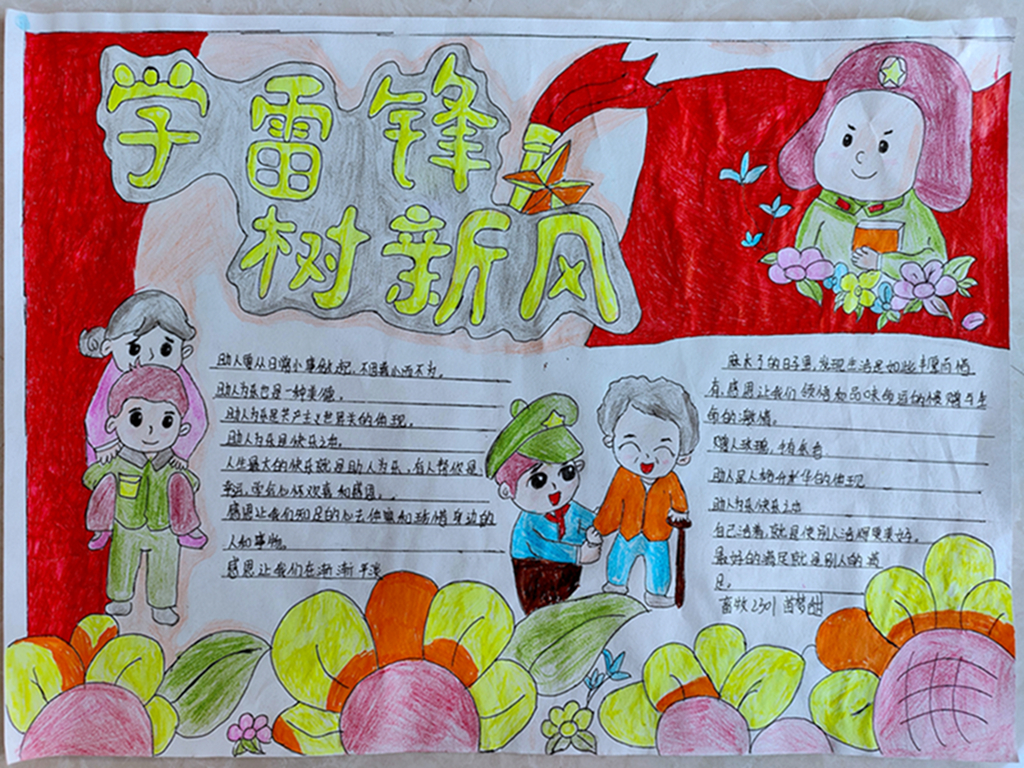 学雷锋
树新风
助人要从日常小事做起，不因善小而不为。
助人为乐也是一种美德。
助人为乐是共产主义世界美的体现。
助人为乐是快乐之本。
人生最大的快乐就是助人为乐，有人帮你是
幸运，学会心怀欢喜和感恩。
感恩让我们知足的心去体察和珍惜身边的
人和事物。
感恩让我们在渐渐平淡
麻木了的日子里，发现生活是如此丰厚而富
有，感恩让我们领悟和品味命运的馈赠与生
命的激情。
赠人玫瑰，手有余香
助人是人格升华的体现
助人为乐快乐之本
自己活着，就是使别人活得更美好。
最好的满足就是别人的满
足。
畜牧2301 苗梦甜